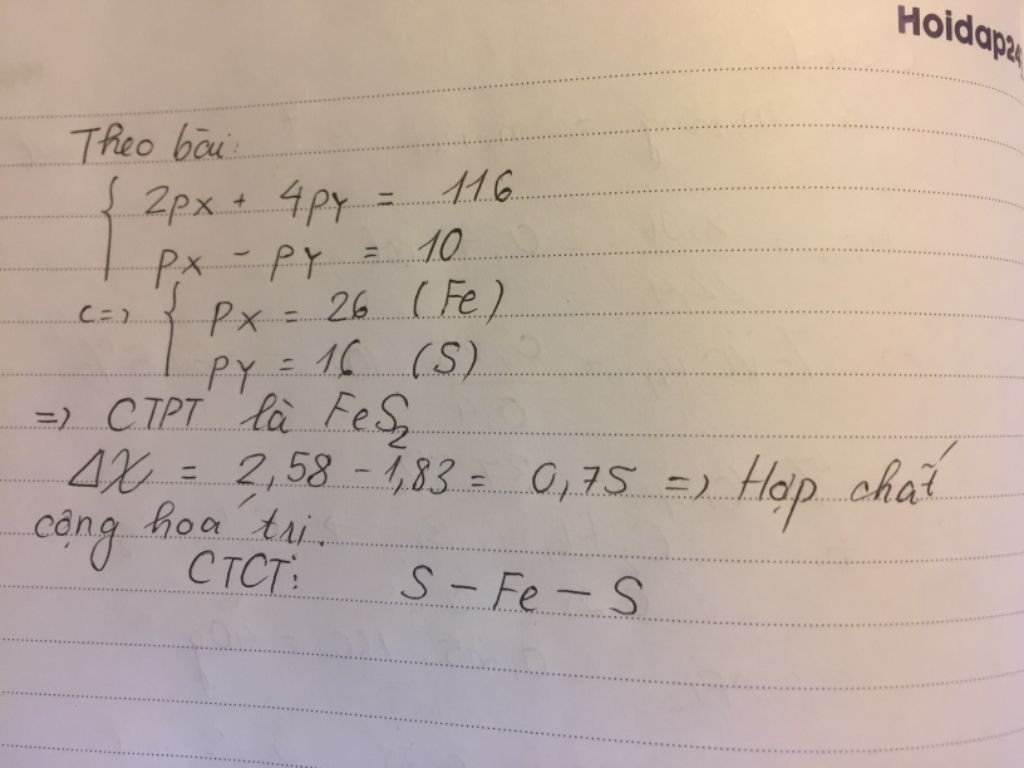 Hoidap24
Theo bài:
{ 2px + 4py = 116
px - py = 10
<=> { px = 26 (Fe)
py = 16 (S)
=> CTPT là FeS₂
ΔX = 2,58 - 1,83 = 0,75 => Hợp chất
cộng hoá trị.
CTCT: S - Fe - S